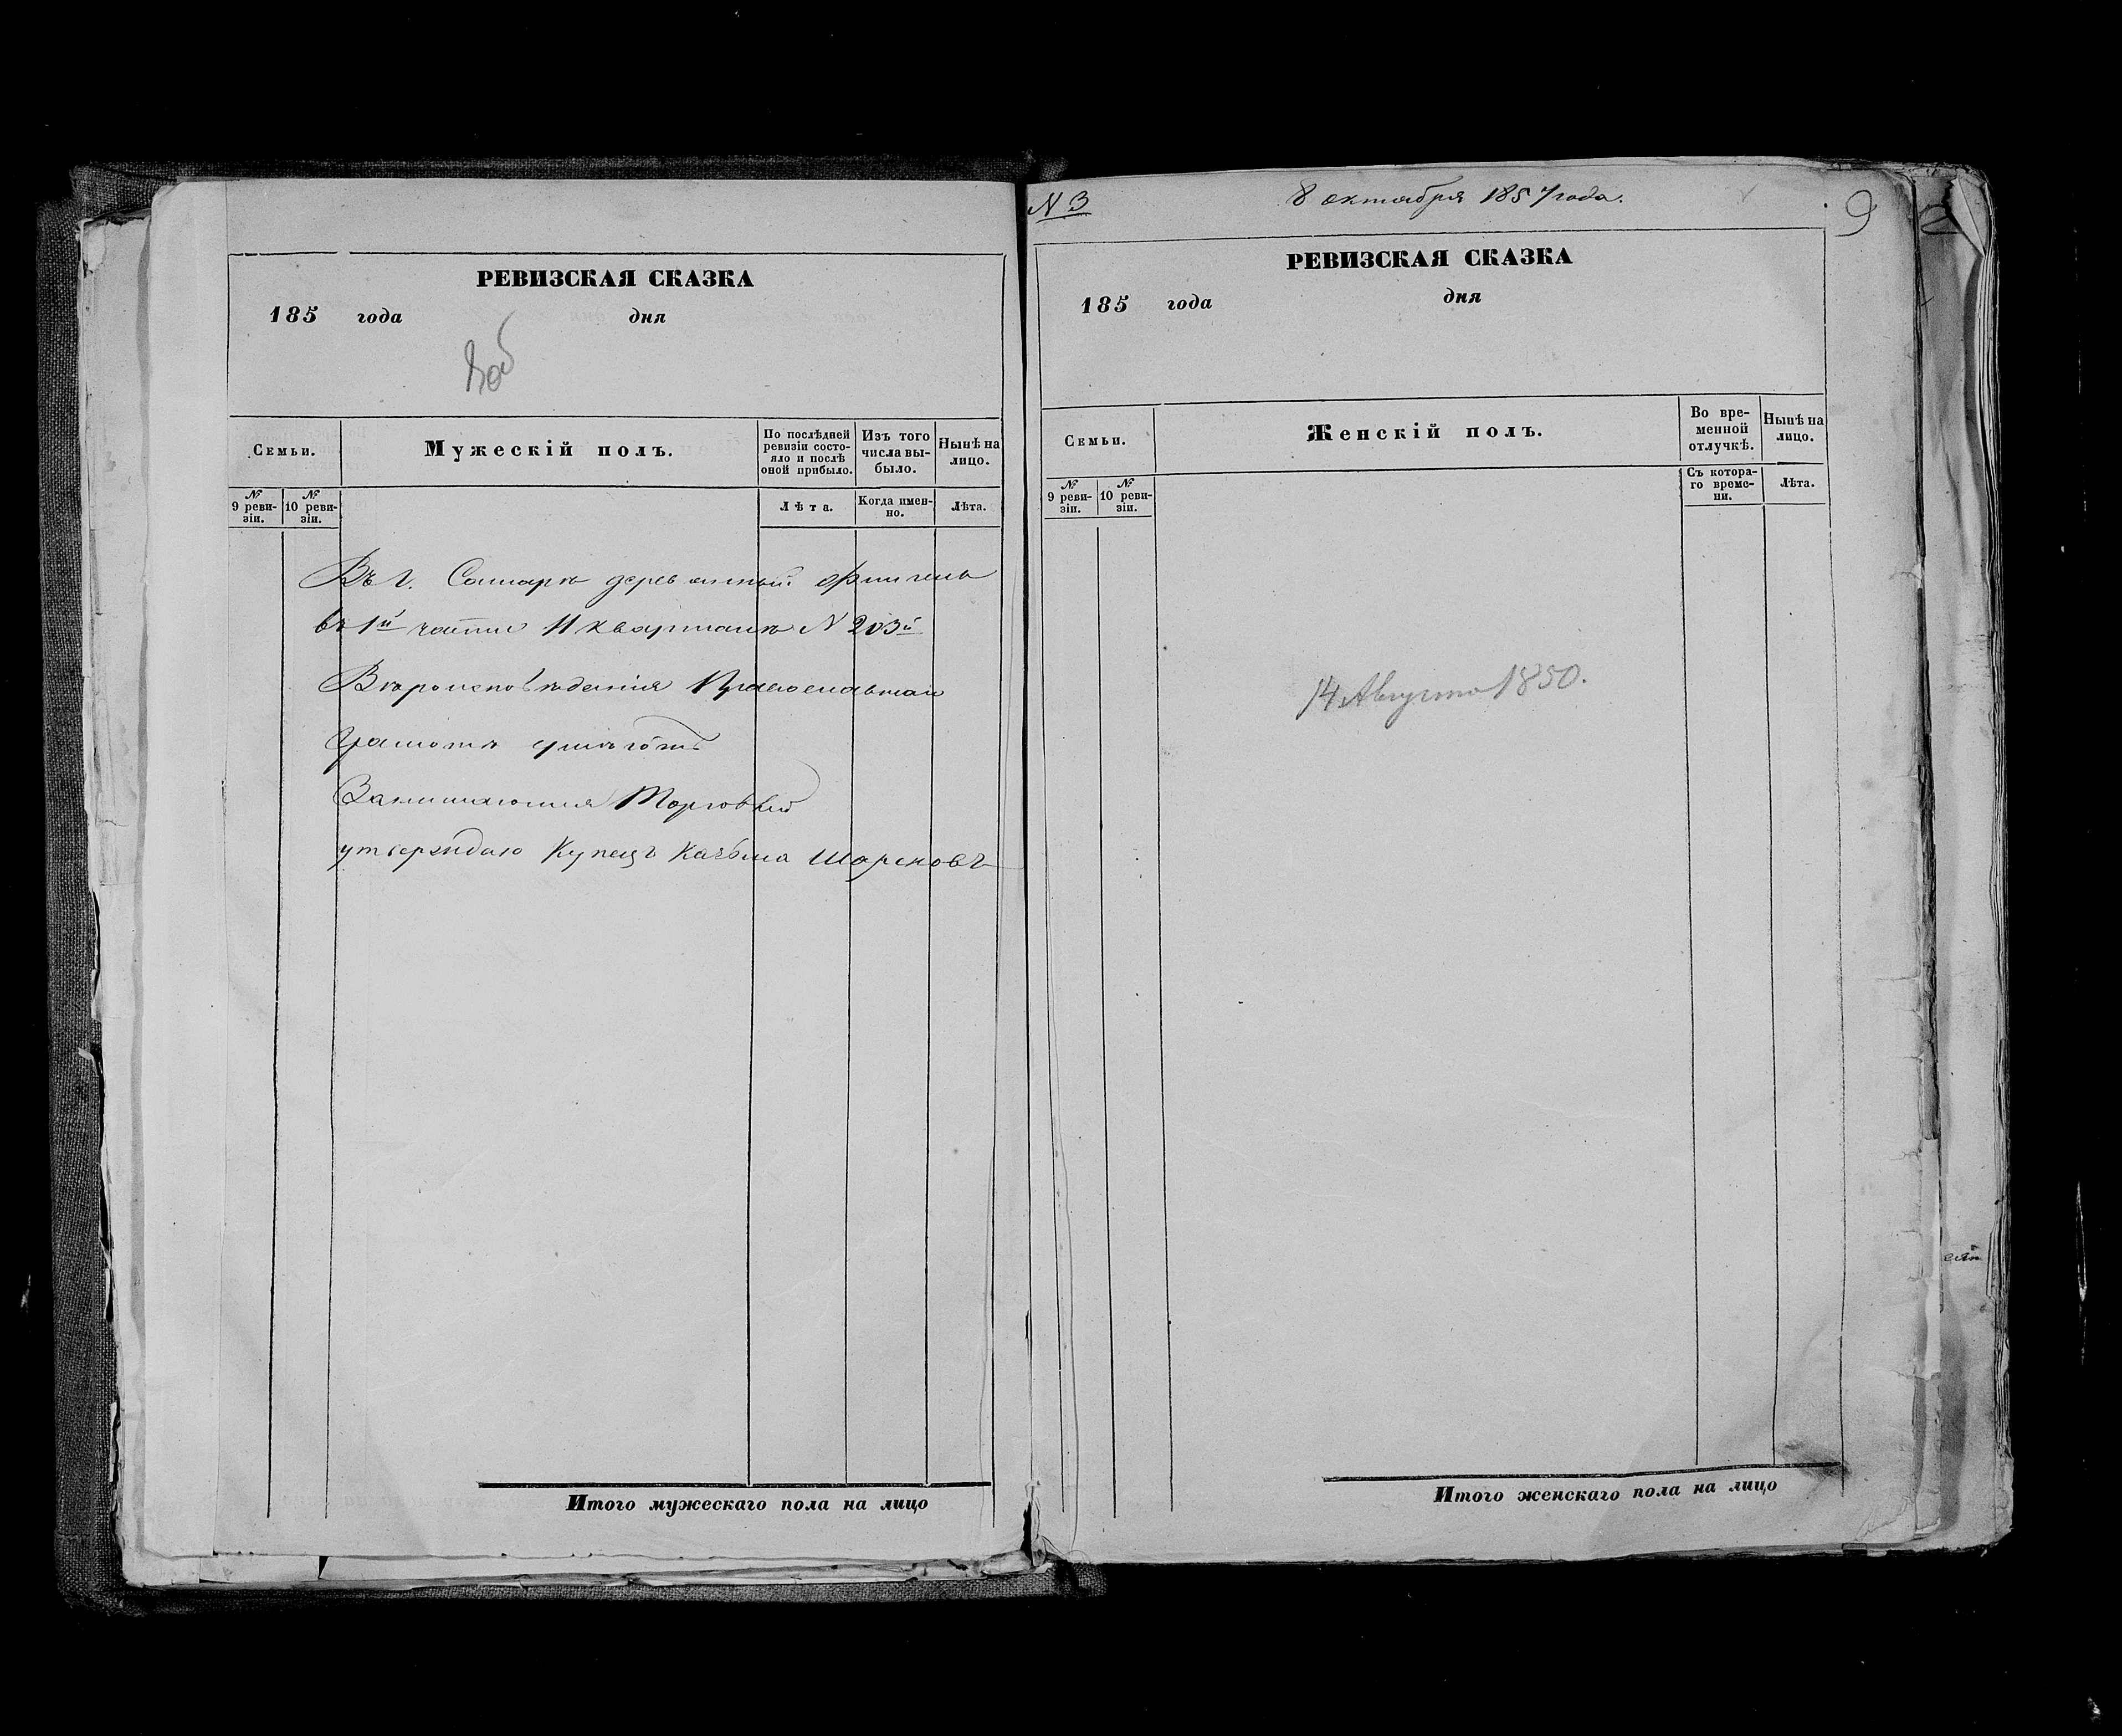 РЕВИЗСКАЯ СКАЗКА
185 года дня
Семьи.
Мужескій полъ.
По послѣдней ревизіи состояло и послѣ оной прибыло.
Изъ того числа выбыло.
Нынѣ на лицо.
№ 9 ревизіи.
№ 10 ревизіи.
Лѣта.
Когда именно.
Лѣта.
Въ г. Самарѣ деревянный флигель
въ 1й части 11 кварталѣ N 203й
Вѣроисповѣданія Православнаго
Грамотѣ
Занимаются Торговлей
утверждаю Купецъ Шареновъ
Итого мужескаго пола на лицо
N 3
8 октября 1857 года.
9
РЕВИЗСКАЯ СКАЗКА
185 года дня
Семьи.
Женскій полъ.
Во временной отлучкѣ.
Нынѣ на лицо.
№ 9 ревизіи.
№ 10 ревизіи.
Съ котораго времени.
Лѣта.
14 Августа 1850.
Итого женскаго пола на лицо